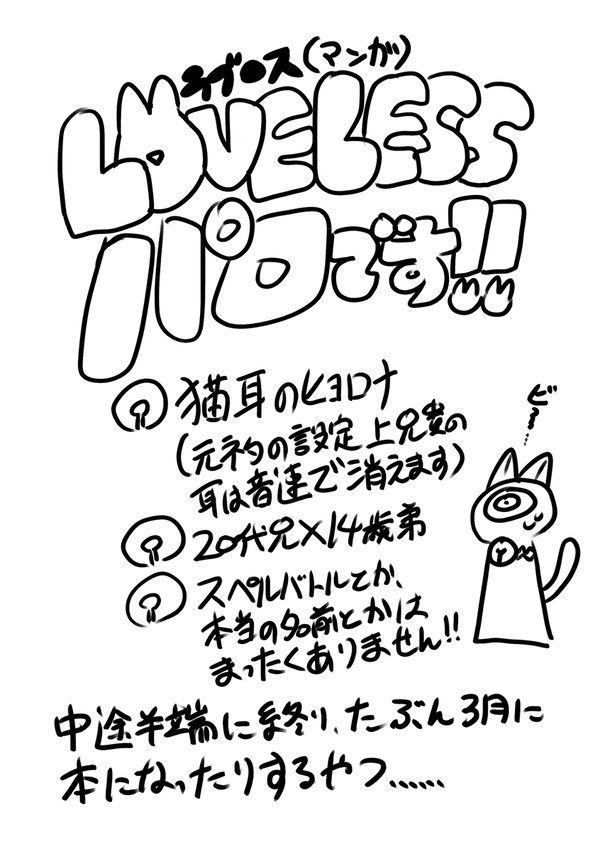 ラブレス(マンガ)
LOVELESS
パロです!!
猫耳のヒョロナ
(元ネタの設定上兄貴の
耳は音速で消えます)
20代兄×14歳弟
スペルバトルとか、
本当の名前とかは
まったくありません!!
ピ〜…
中途半端に終り、たぶん3月に
本になったりするやつ……